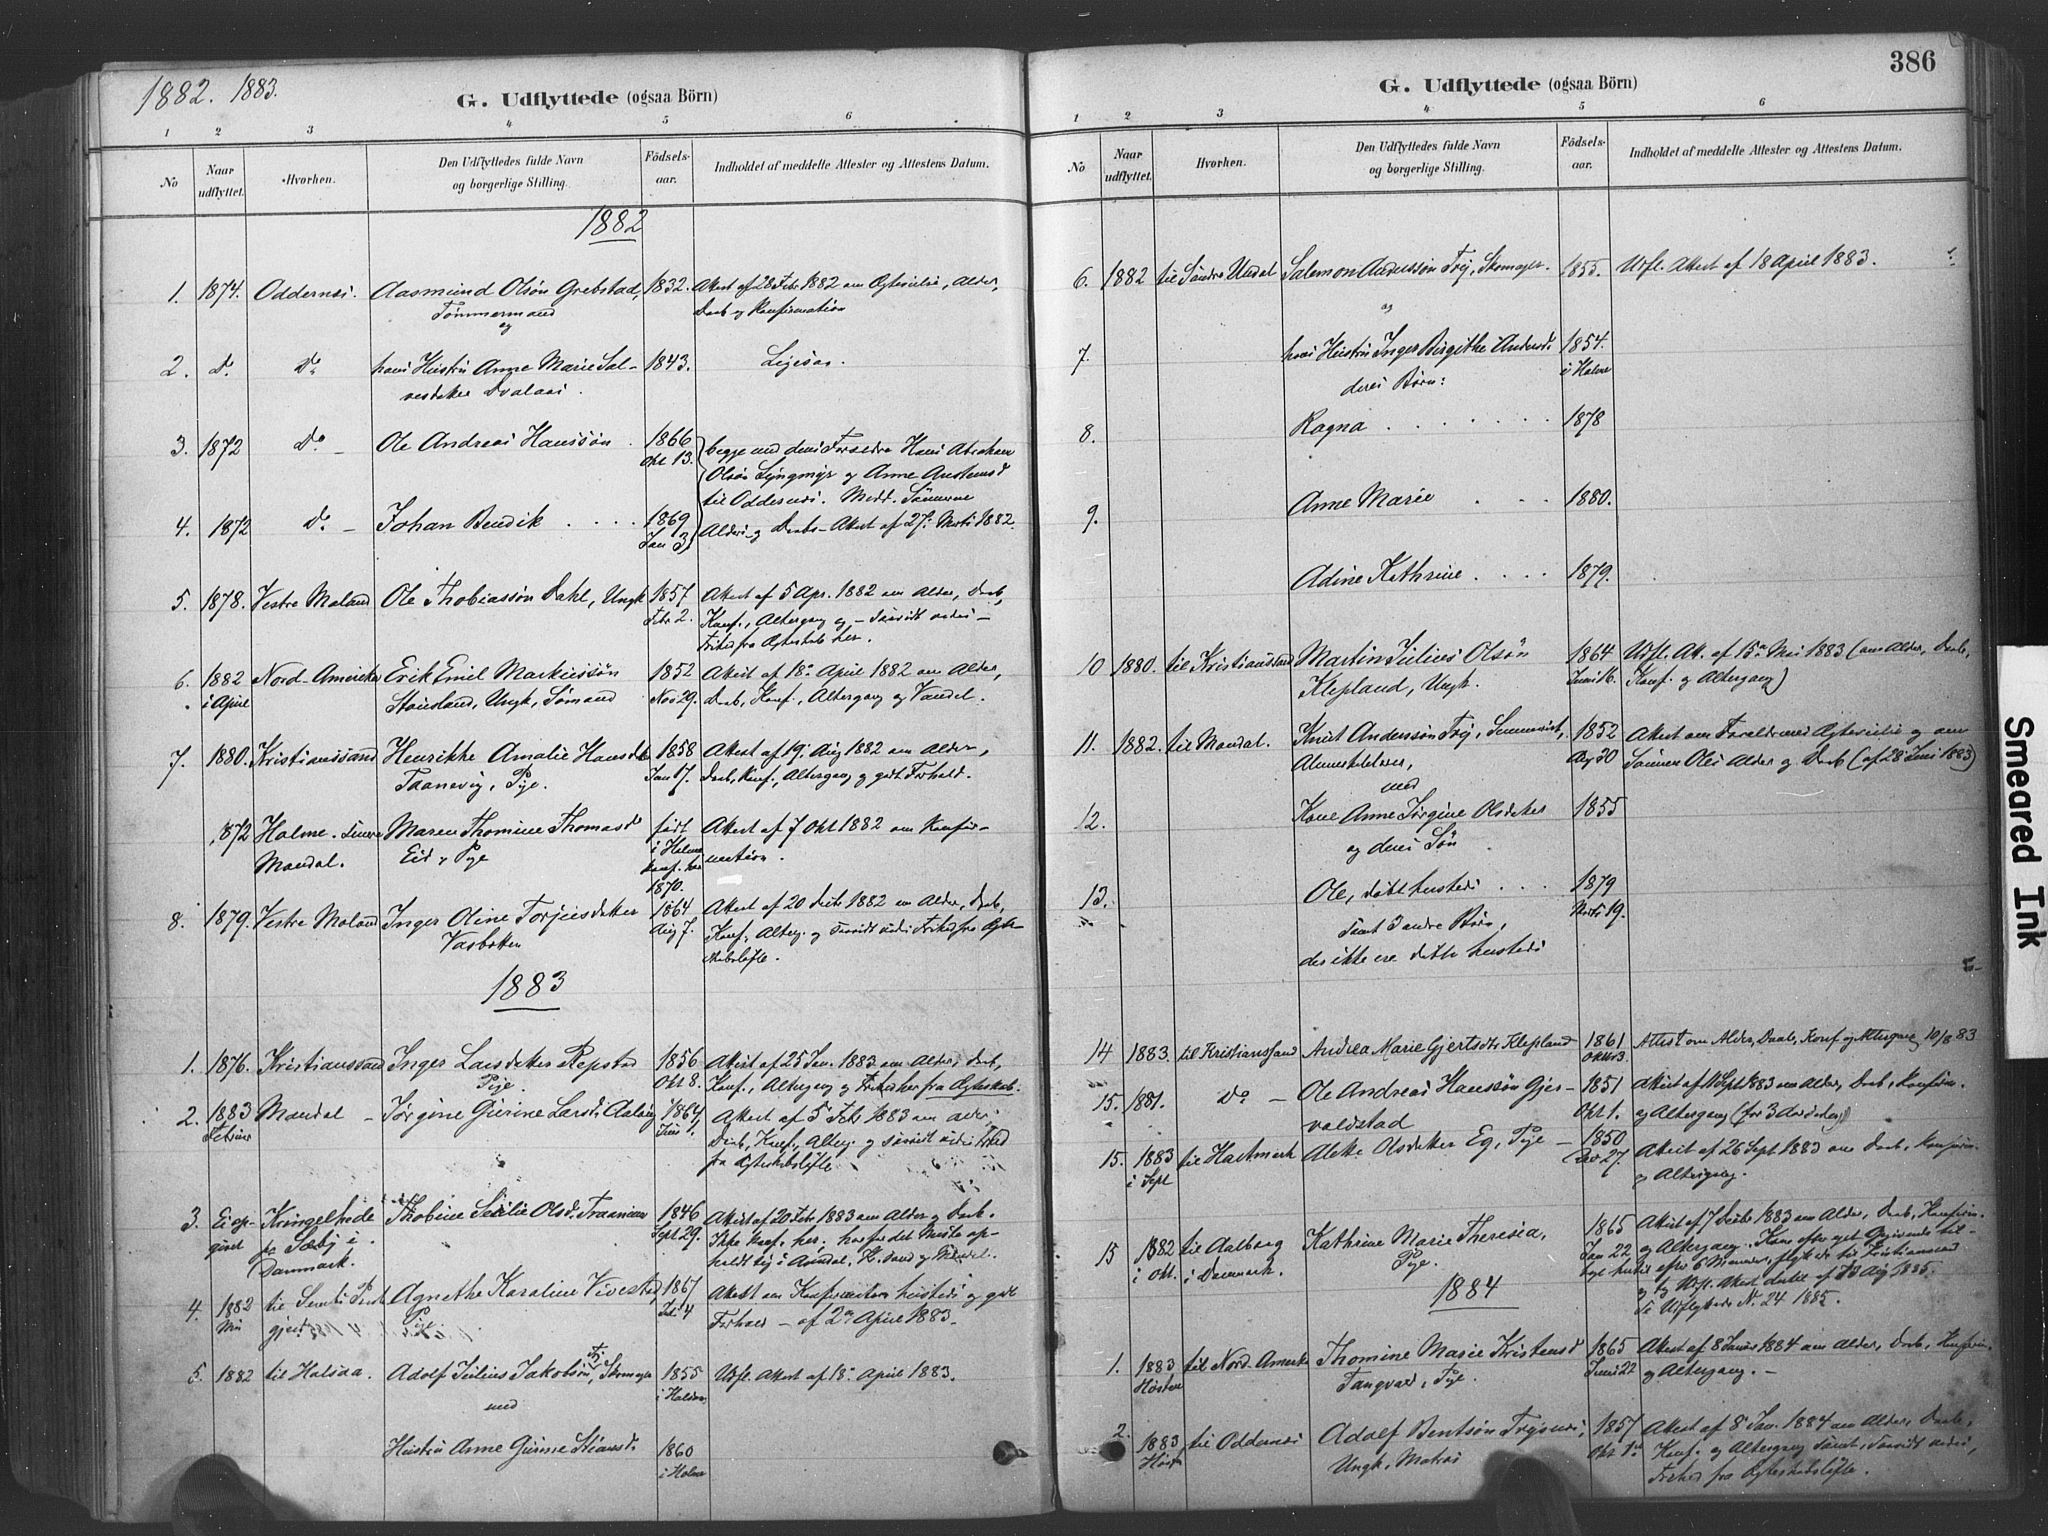 1882. 1883.
G. Udflyttede (ogsaa Börn)
1 2 3 4 5 6
No
Naar udflyttet.
Hvorhen.
Den Udflyttedes fulde Navn
og borgerlige Stilling.
Födsels-
aar.
Indholdet af meddelte Attester og Attestens Datum.
1882
1. 1874. Oddernes. Aasmund Olsön Grebstad, 1832. Attest af 28 Febr. 1882 om Ægtevielse, Alder,
Tömmermand Daab og Konfirmation
og
2. Do Do hans Hustru Anne Marie Sal- 1843. Ligesaa.
vesdatter
3. 1872 Do Ole Andreas Hanssön 1866 begge med deres Forældre Hans Abraham
Okt 13. Olsön Lyngmyr og Anne
til Oddernes. Medd. Sönnerne
4. 1872 Do Johan Bendik 1869 Alders og Daabs-Attest af 27 Marts 1882.
Jan 3
5. 1878. Vestre Moland Ole Thobiassön Dahl, Ungk 1857 Attest af 5 Apr. 1882 om Alder, Daab,
Febr 2. Konf., Altergang og
Frihed fra Ægteskab her.
6. 1882 Nord Amerika Erik Emil Markussön 1852 Attest af 18 April 1882 om Alder,
i April Stausland, Ungk, Sömand Nov 29. Daab, Konf., Altergang og Vandel.
7. 1880. Kristianssand Henrikke Amalie Hansdr 1858 Attest af 19 Aug 1882 om Alder,
Taanevig, Pige. Jan 17. Daab, Konf., Altergang og godt Forhold.
1872 Holme Maren Thomine Thomasd født Attest af 7 Okt 1882 om Konfir-
Mandal. Eid, Pige i Holme mation.
konf. her
1870.
8. 1879. Vestre Moland Inger Oline Torjusdatter 1864 Attest af 20 Decbr 1882 om Alder, Daab,
Aug 7. Konf., Alterg. og saavidt vides Frihed fra Ægte-
skabslöfte.
1883
1. 1876. Kristianssand Inger Larsdatter Repstad 1856 Attest af 25 Jan. 1883 om Alder, Daab,
Pige. Okt 8. Konf., Altergang og Frihed her fra Ægteskab.
2. 1883 Mandal Jörgine Gurine Larsd. 1864 Attest af 5 Febr 1883 om Alder
Februar Daab, Konf., Alterg. og saavidt vides Frihed
fra Ægteskabslöfte.
3. Ei op- Thobine Olsd. 1846 Attest af 20 Febr 1883 om Alder og Daab.
givet Sæby i Sept 29. Ikke konf. her.
Danmark.
4. 1882 Agnethe Karoline Vivestad 1867 Attest om Konfirmation hersteds og godt
Mai Pige. Juli 4 Forhold af 2 April 1883.
5. 1882 til Halsaa. Adolf Julius Jakobsön, Skomager 1855 Udfl. Attest af 18 April 1883.
med
Hustru Anne Gurine 1860
i Holme
386
G. Udflyttede (ogsaa Börn)
1 2 3 4 5 6
No
Naar udflyttet.
Hvorhen.
Den Udflyttedes fulde Navn
og borgerlige Stilling.
Födsels-
aar.
Indholdet af meddelte Attester og Attestens Datum.
6. 1882 til Söndre Undal Salomon Anderssön Try, Skomager. 1855. Udfl. Attest af 18 April 1883.
og
7. hans Hustru Inger Birgithe Andersd. 1854.
deres Börn: i Holme
8. Ragna 1878
9. Anne Marie 1880.
Adine Kathrine 1879.
10 1880. til Kristianssand Martin Julius Olsön 1864 Udfl. Att. af 15 Mai 1883 (om Alder, Daab,
Klepland, Ungk. Juni 16. Konf. og Altergang)
11. 1882. til Mandal. Knut Anderssön Try, 1852 Attest om Forældrenes Ægtevielse og om
Aug 30 Sönnen Oles Alder og Daab (af 28 Juni 1883)
med
12. Kone Anne Jörgine Olsdatter 1855
og deres Sön
13. Ole, døbt hersteds 1879
samt 3 andre Börn, Marts 19.
der ikke ere døbte hersteds
14 1883. til Kristianssand Andrea Marie Gjertsdtr Klepland 1861 Attest om Alder, Daab, Konf og Altergang 10/8 83
15. 1881. Do Ole Andreas Hanssön Gjer- 1851 Attest af Sept 1883 om Alder, Daab, Konfirm.
valdstad Okt 1. og Altergang (for 3
15. 1883 til Hartmark Olsdatter Eg, Pige 1850 Attest af 26 Sept 1883 om Daab, Konfirm.
i Sept 27. og Altergang.
15 1882 til Aalborg Kathrine Marie Theresia, 1865 Attest af 7 1883 om Alder, Daab, Konfirm.
i Okt. i Danmark. Pige. Jan 22 og Altergang.
efter 6 Maaneder, til Kristianssand
Udfl. Attest dertil af Aug 1885.
Se Udflyttede No 24 1885.
1884
1. 1883 til Nord. Amerika Thomine Marie Kristensd 1865 Attest af 8 Januar 1884 om Alder, Daab, Konfirm.
Høsten Tangvald, Pige. Juni 22 og Altergang.
2. 1883 til Oddernes Adolf Bentsön Trysnes, 1857 Attest af 8 Jan. 1884 om Alder, Daab,
Høst Ungk, Matros Okt 1st Konf. og Altergang samt, saavidt vides,
Frihed fra Ægteskabslöfte.
Smeared Ink